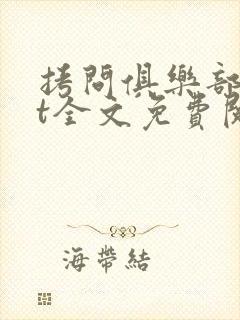 拷問俱樂部
t全文免費閱
海帶結